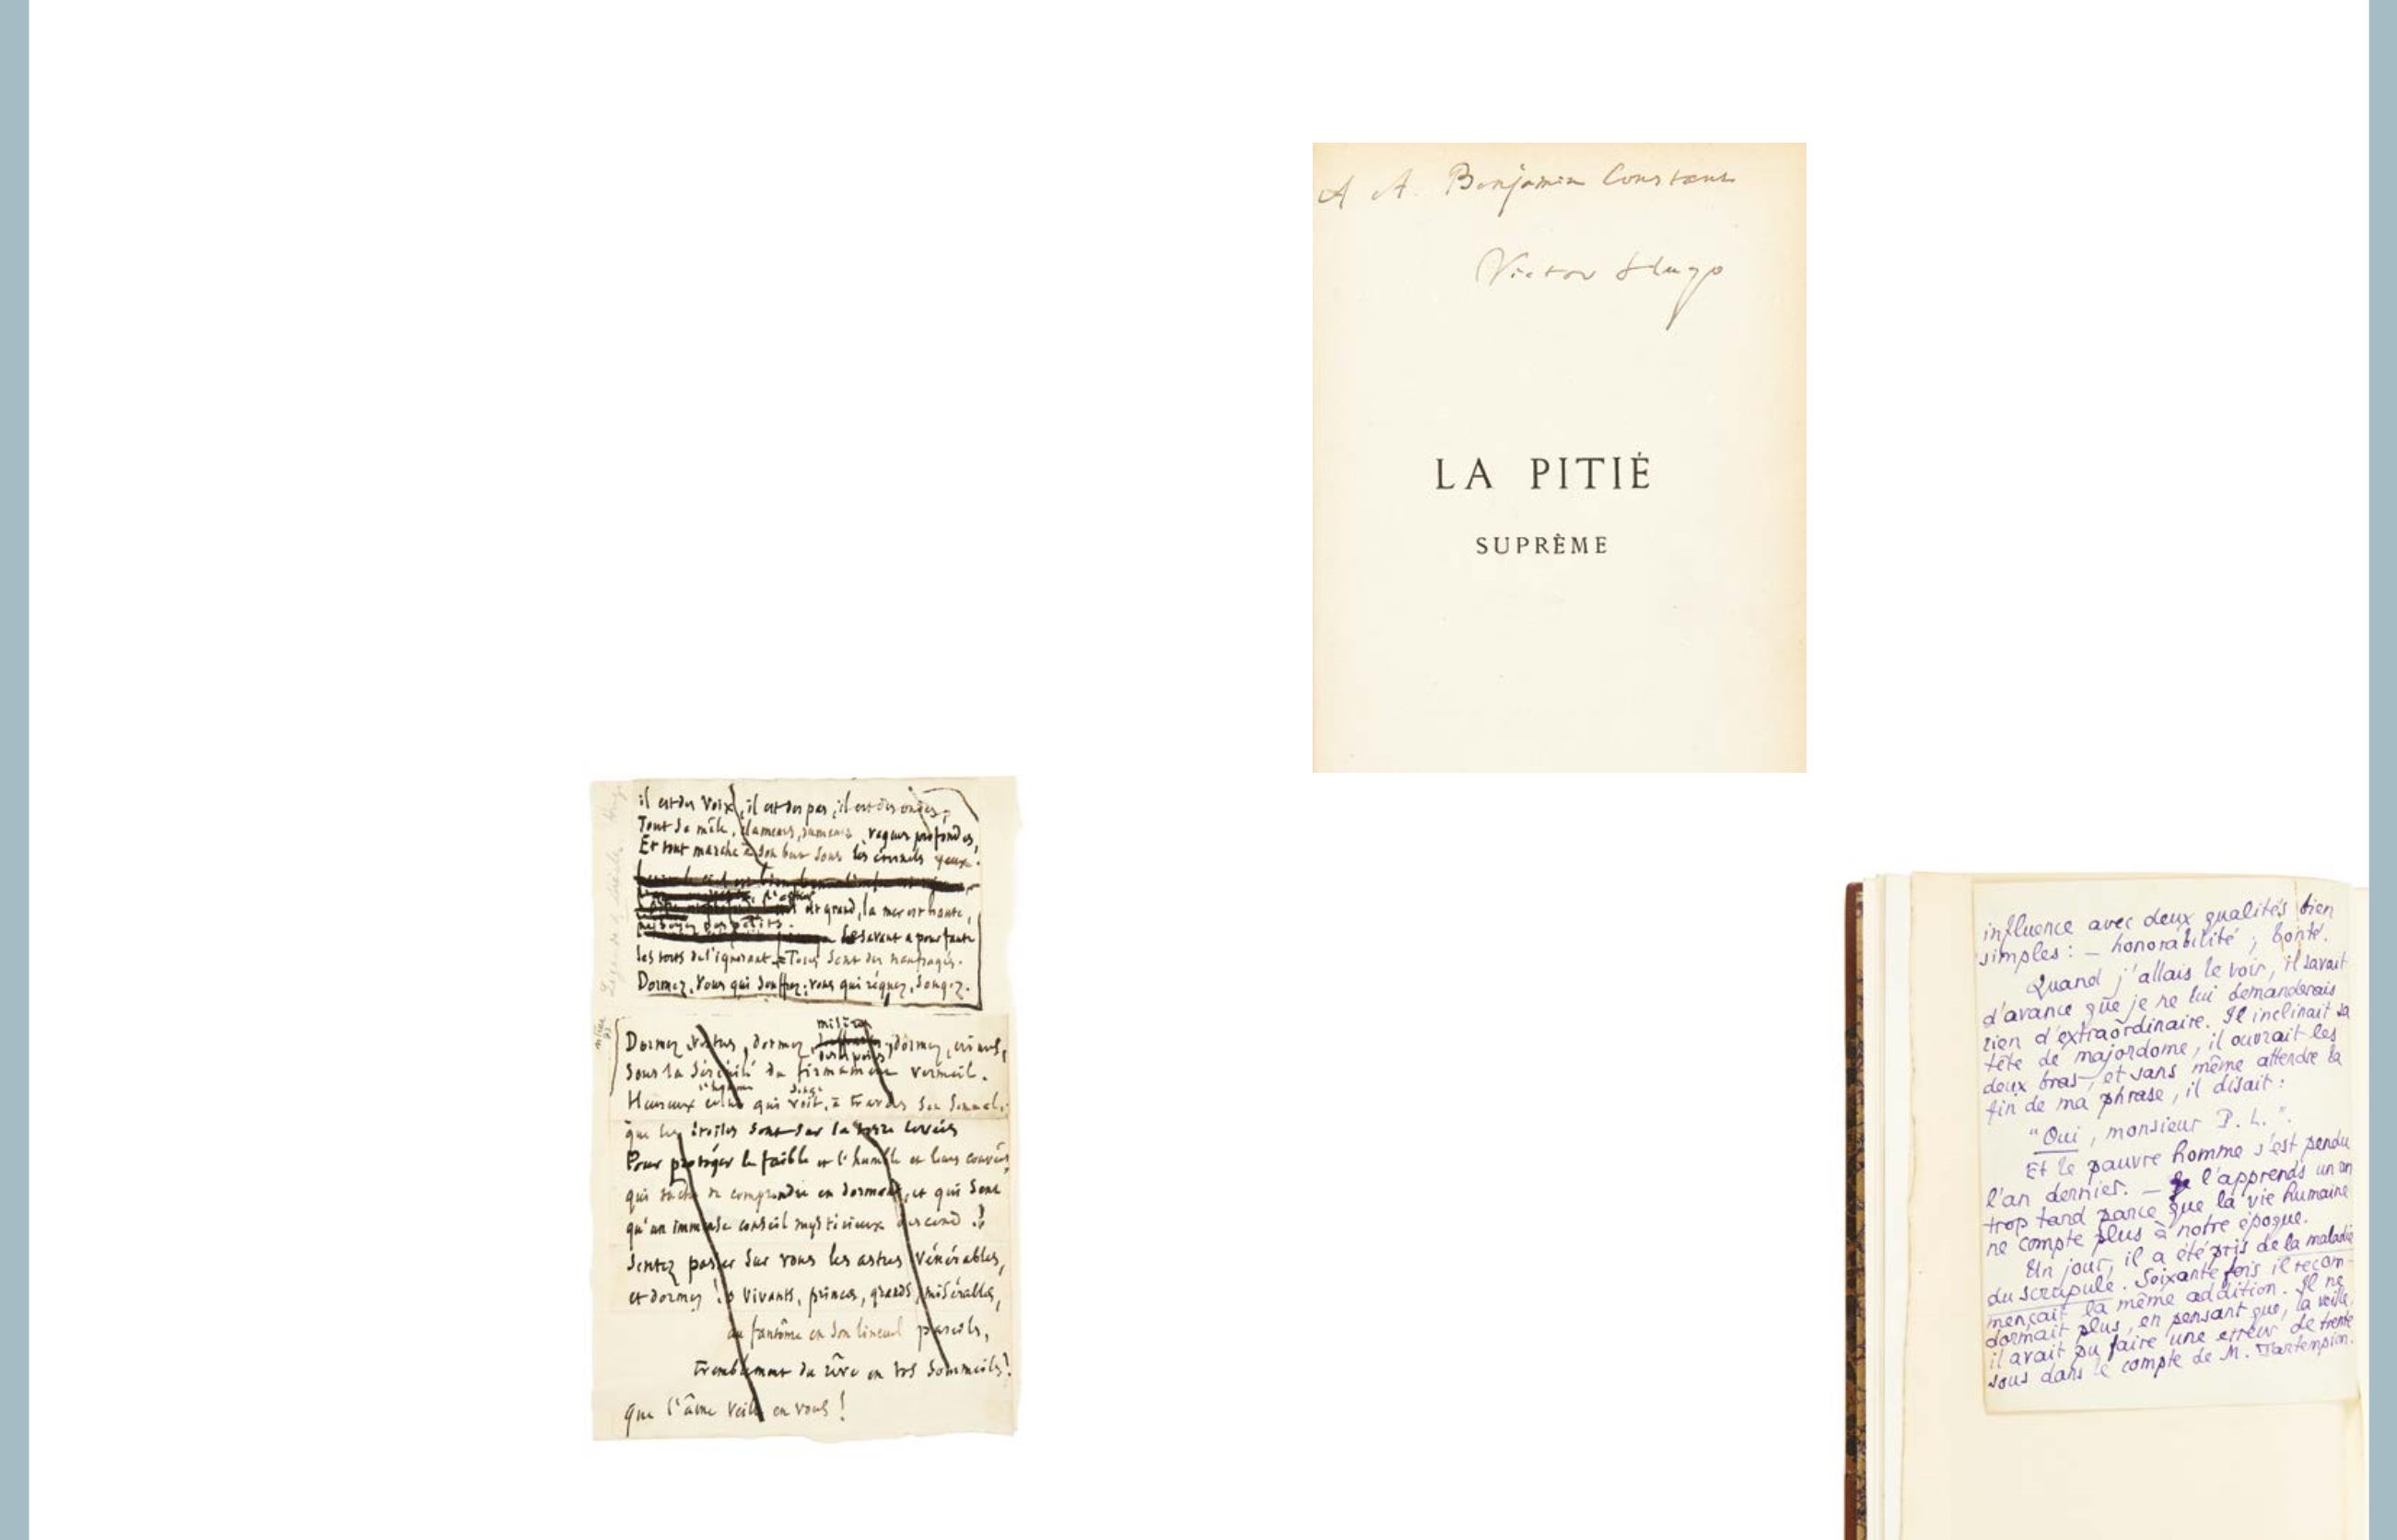 A A. Benjamin Constant
Victor Hugo
LA PITIÉ
SUPRÊME
il est des voix, il est des pas, il est des ondes,
Tout se mêle, clameurs, vagues profondes,
Et tout marche à son but sous les yeux.
est grand, la mer est haute,
le savant a pour faute
les torts de l'ignorant. Tous sont des naufragés.
Dormez, vous qui souffrez; vous qui régnez, songez.
misère
Dormez vertus, dormez, dormez,
Sous la sérénité du firmament vermeil.
songe
Heureux celui qui voit, à travers son sommeil,
que les étoiles sont sur la terre levées
Pour protéger le faible et l'humble et leurs couvées,
qui tâche de comprendre en dormant, et qui sent
qu'un immense conseil mystérieux descend !
Sentez passer sur vous les astres vénérables,
et dormez ! ô vivants, princes, grands, misérables,
au fantôme en son linceul pareils,
tremblement du rêve en vos sommeils !
que l'âme veille en vous !
influence avec deux qualités bien
simples : — honorabilité ; bonté.
Quand j'allais le voir, il savait
d'avance que je ne lui demanderais
rien d'extraordinaire. Il inclinait sa
tête de majordome, il ouvrait les
deux bras, et sans même attendre la
fin de ma phrase, il disait :
"Oui, monsieur P. L.".
Et le pauvre homme s'est pendu
l'an dernier. — Je l'apprends un an
trop tard parce que la vie humaine
ne compte plus à notre époque.
Un jour, il a été pris de la maladie
du scrupule. Soixante fois il recom-
mençait la même addition. Il ne
dormait plus, en pensant que, la veille,
il avait pu faire une erreur de trente
sous dans le compte de M. Tartempion.